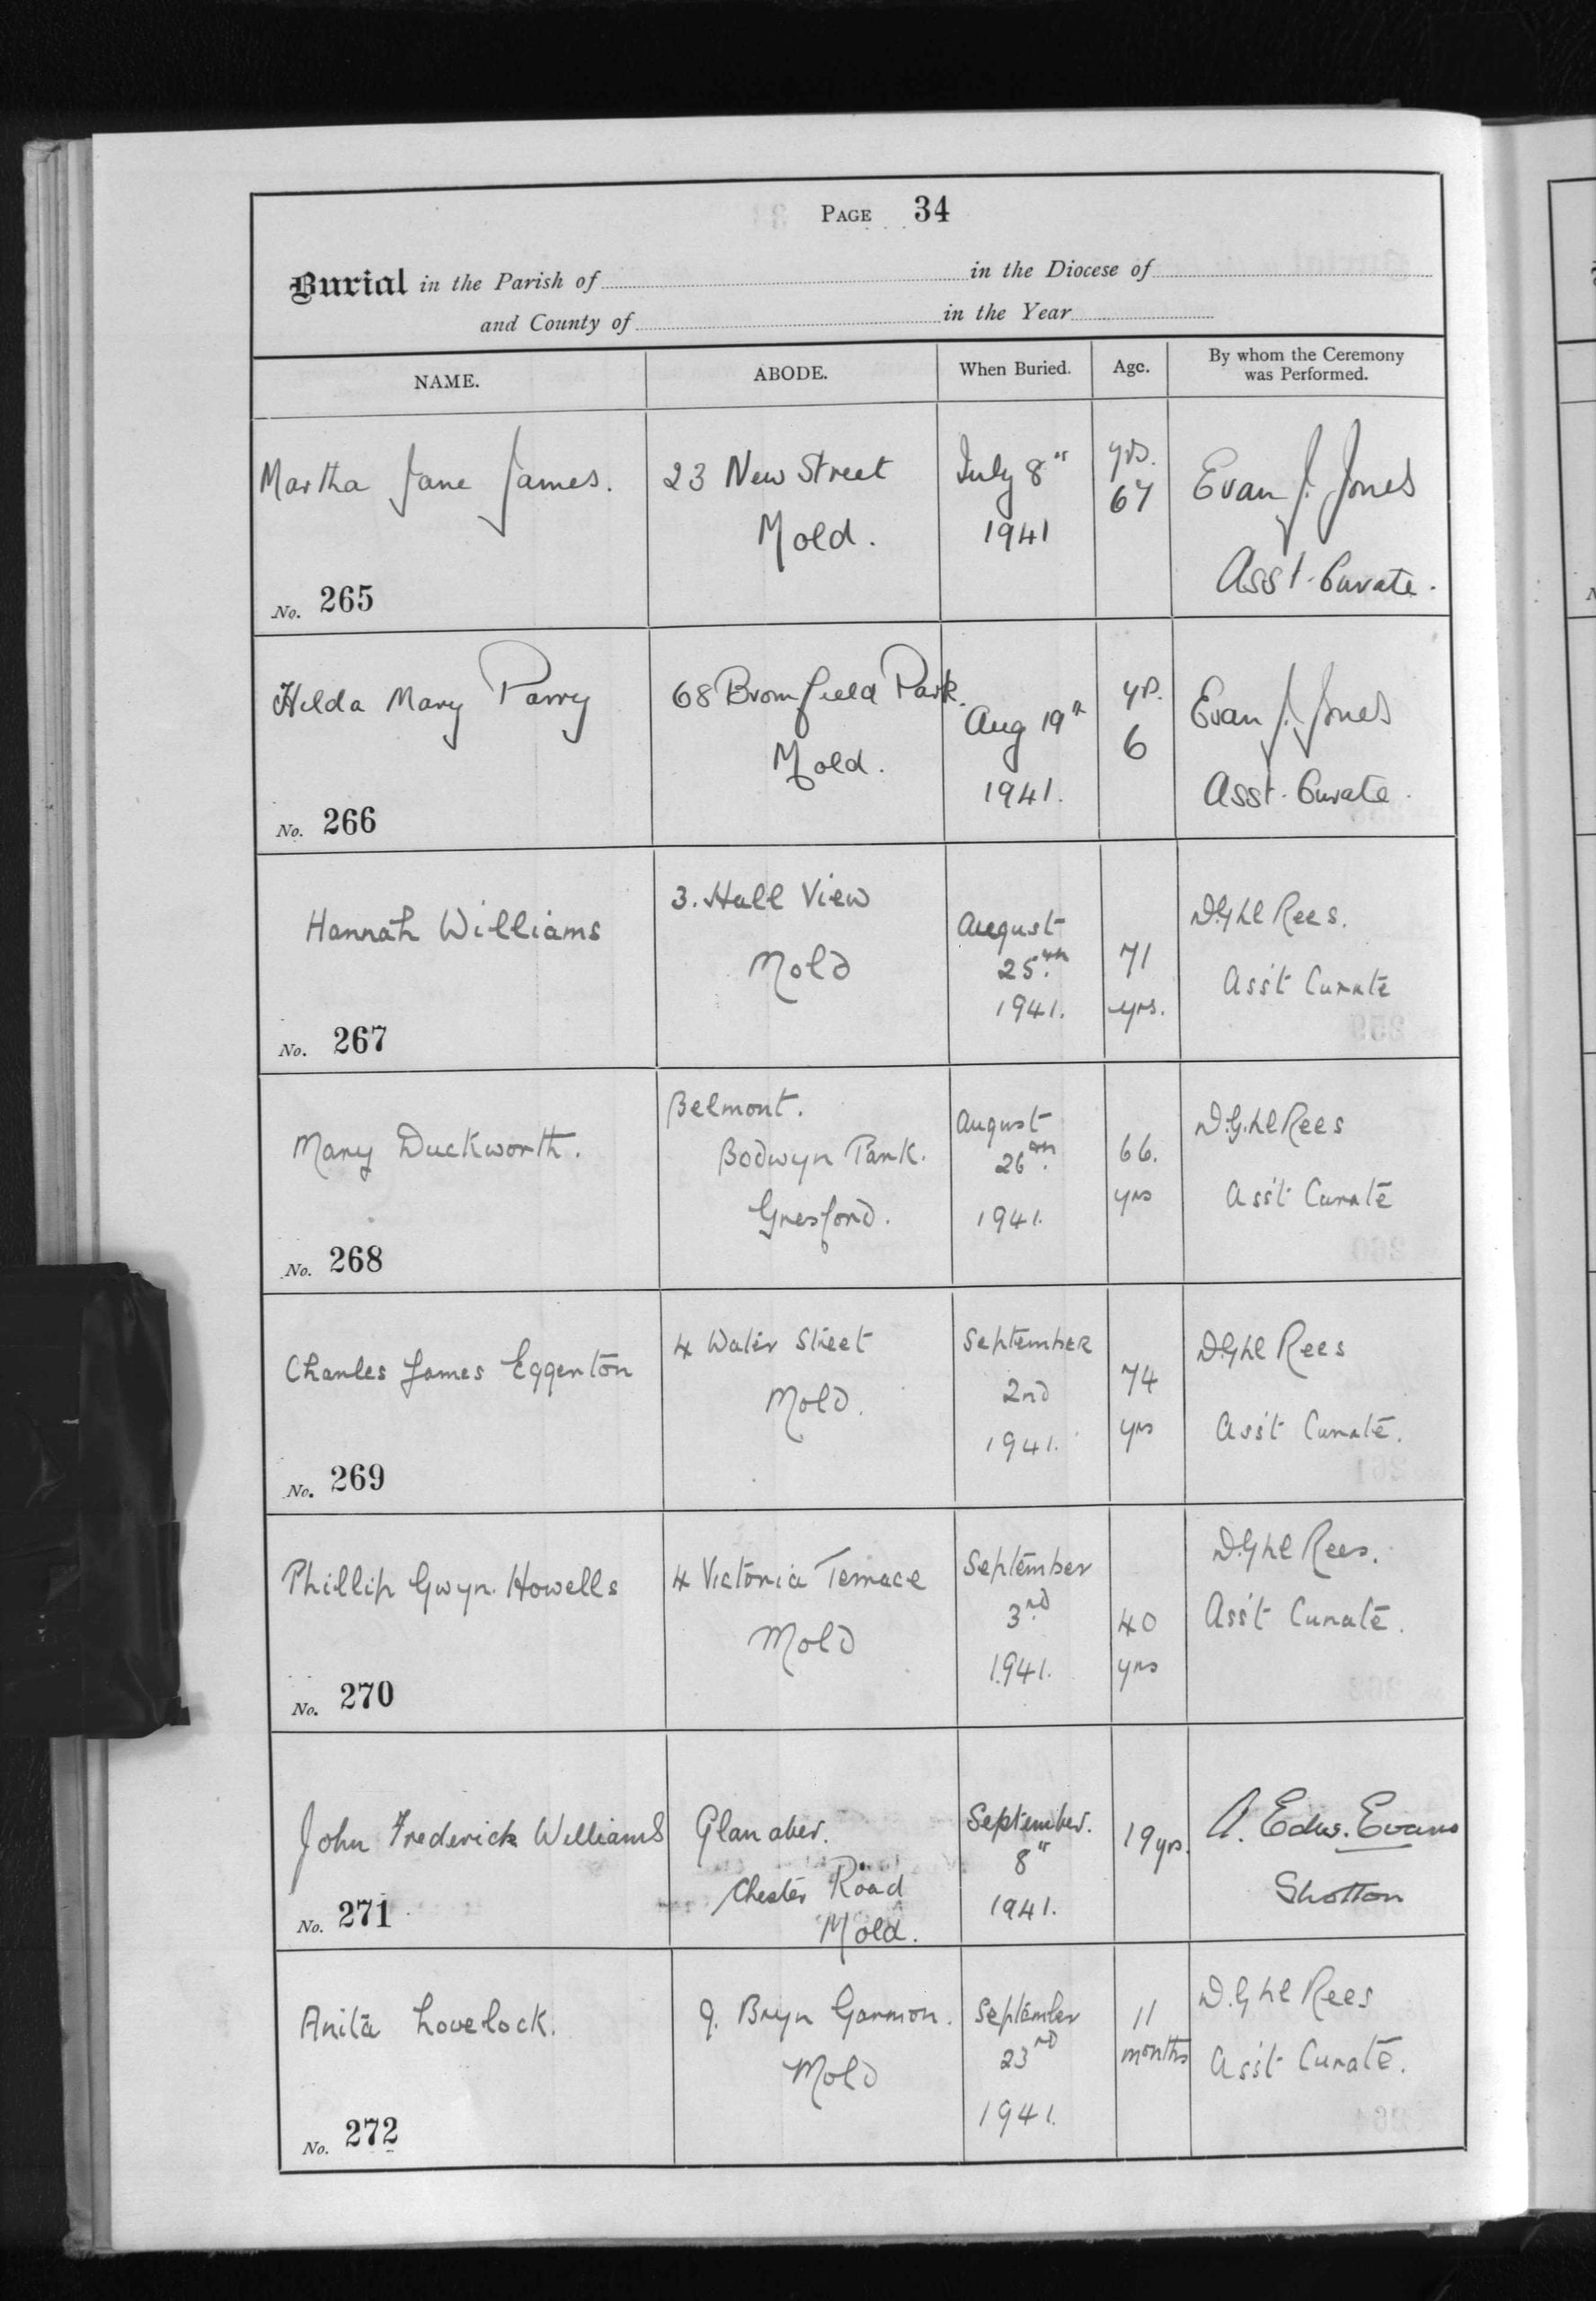 PAGE 34
Burial in the Parish of in the Diocese of
and County of in the Year
NAME. ABODE. When Buried. Age. By whom the Ceremony was Performed.
Martha Jane James.
23 New Street
Mold.
July 8"
1941
yrs.
67
Evan J. Jones
Asst. Curate.
No. 265
Hilda Mary Parry
68 Bromfield Park.
Mold.
Aug 19th
1941.
yrs.
6
Evan J. Jones
Asst. Curate.
No. 266
Hannah Williams
3. Hall View
Mold
August
25th
1941.
71
yrs.
Rees.
Ass't Curate
No. 267
Mary Duckworth.
Belmont.
Bodwyn Park.
Gresford.
August
26th
1941.
66.
yrs
Rees
Ass't Curate
No. 268
Charles James Eggerton
4 Water Street
Mold.
September
2nd
1941.
74
yrs
Rees
Ass't Curate.
No. 269
Phillip Gwyn. Howells
4 Victoria Terrace
Mold
September
3rd
1941.
40
yrs
Rees.
Ass't Curate.
No. 270
John Frederick Williams
Glanaber.
Chester Road
Mold.
September.
8"
1941.
19 yrs.
A. Edw. Evans
Shotton
No. 271
Anita Lovelock.
9. Bryn Garmon.
Mold
September
23rd
1941.
11
months
Rees
Ass't Curate.
No. 272